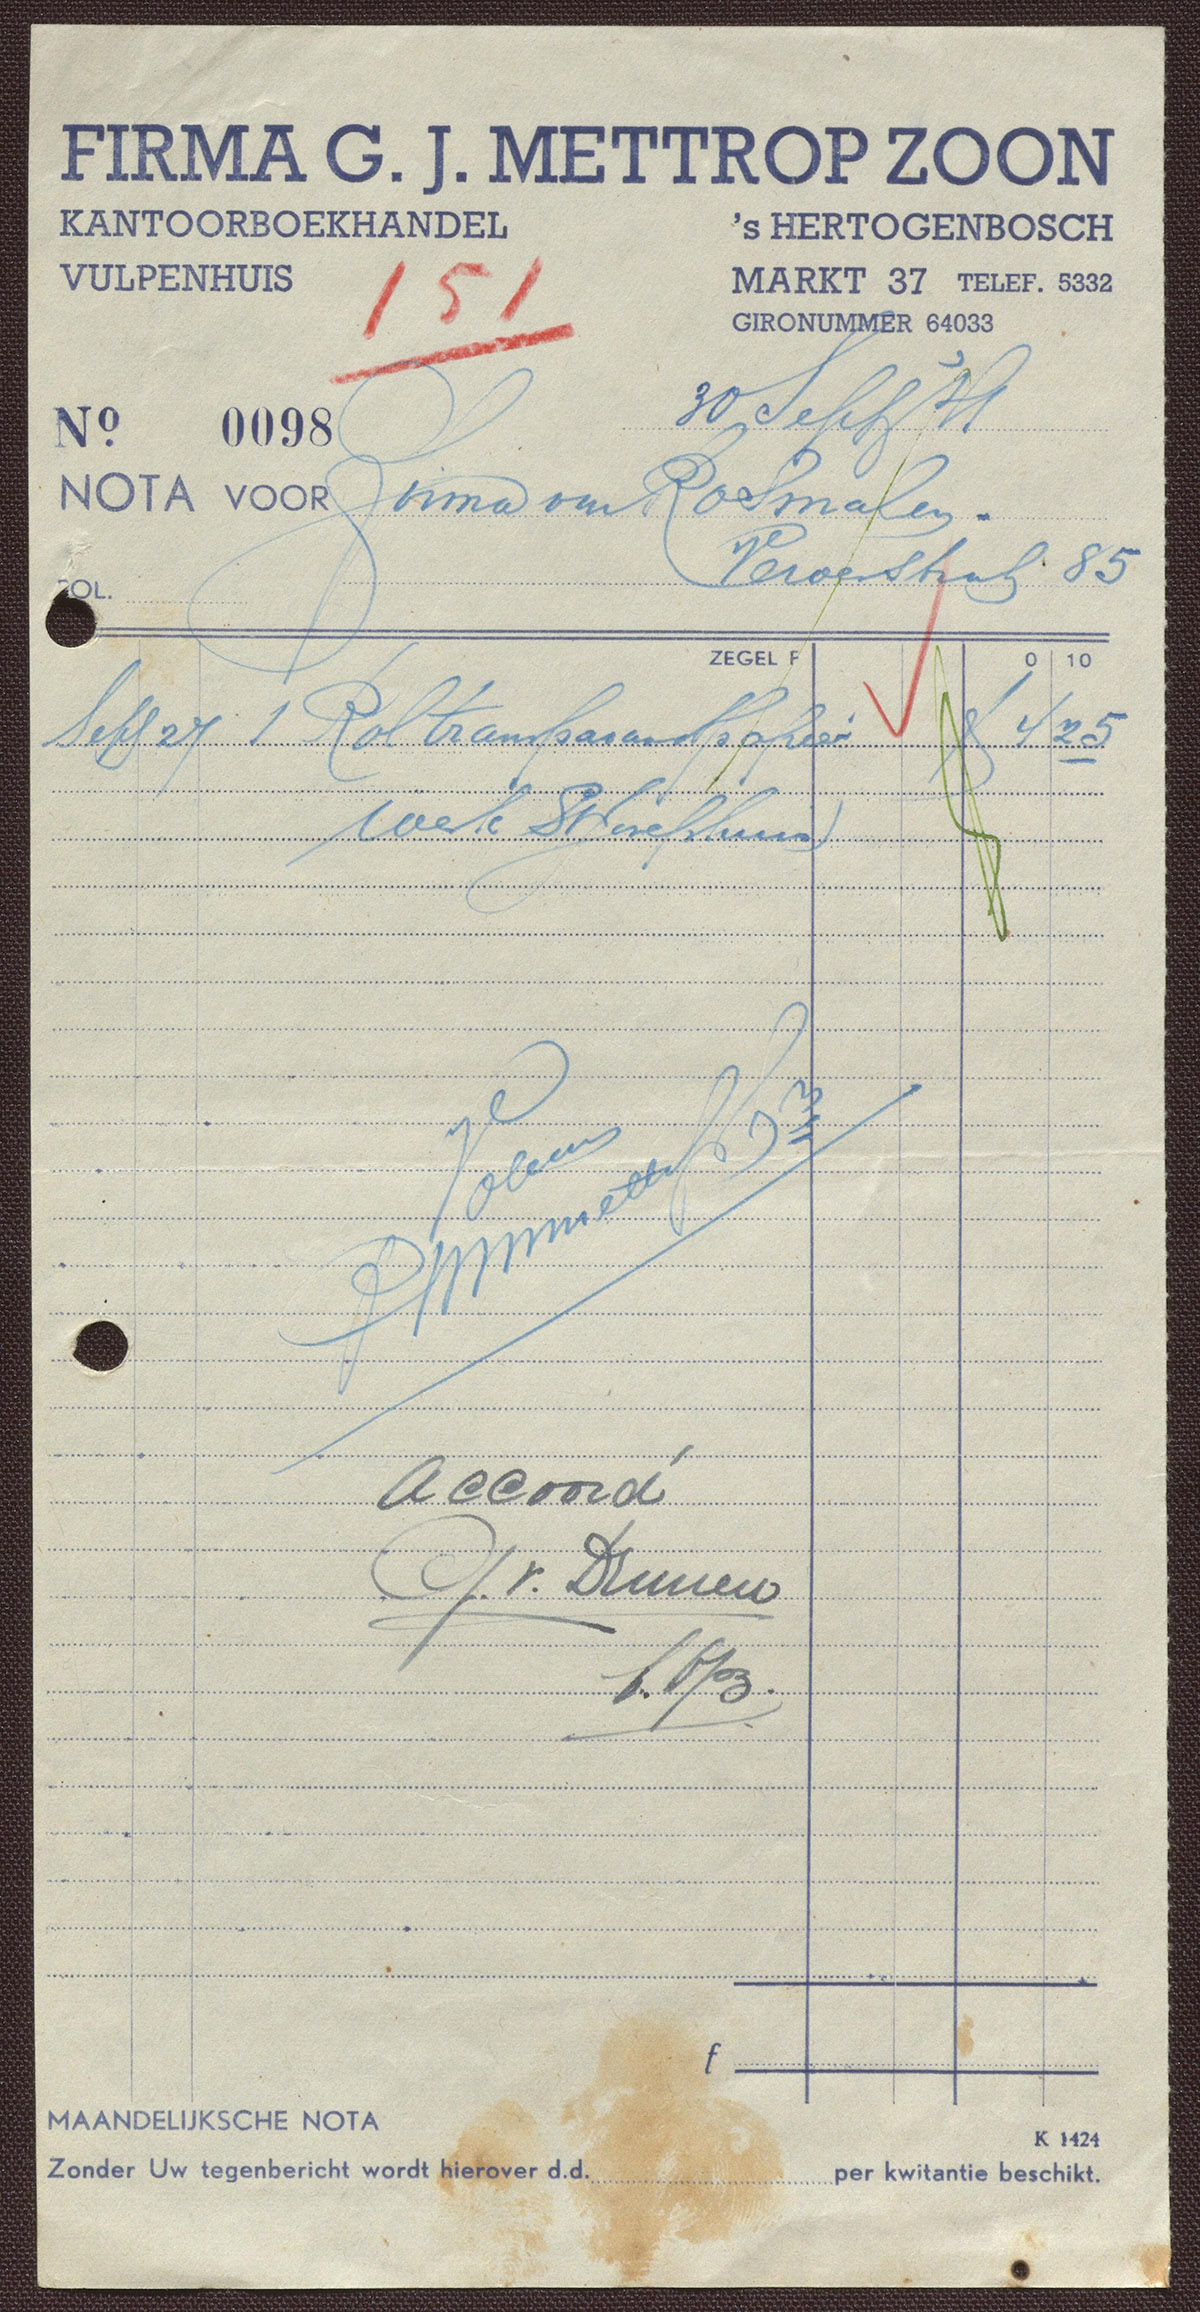 FIRMA G. J. METTROP ZOON
KANTOORBOEKHANDEL
VULPENHUIS
's HERTOGENBOSCH
MARKT 37 TELEF. 5332
GIRONUMMER 64033
151
30 Sept '41
No 0098
NOTA VOOR Firma van Rosmalen.
85
FOL.
ZEGEL F 0 10
Sept 27 1 Rol transparantpapier f 4 25
werk
Voldaan
Accoord
v. Drunen
f
MAANDELIJKSCHE NOTA
K 1424
Zonder Uw tegenbericht wordt hierover d.d. per kwitantie beschikt.